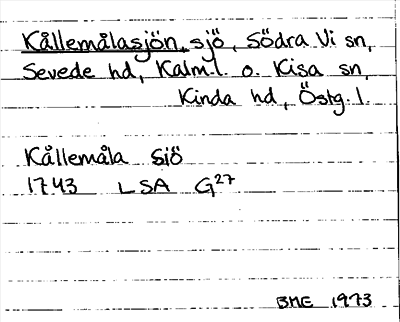 Kållemålasjön, sjö, Södra Vi sn,
Sevede hd, Kalm.l. o. Kisa sn,
Kinda hd, Östg.l.
Kållemåla sjö
1743 LSA G27
BME 1973